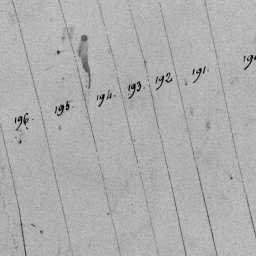 196. 195. 194. 193. 192 191.